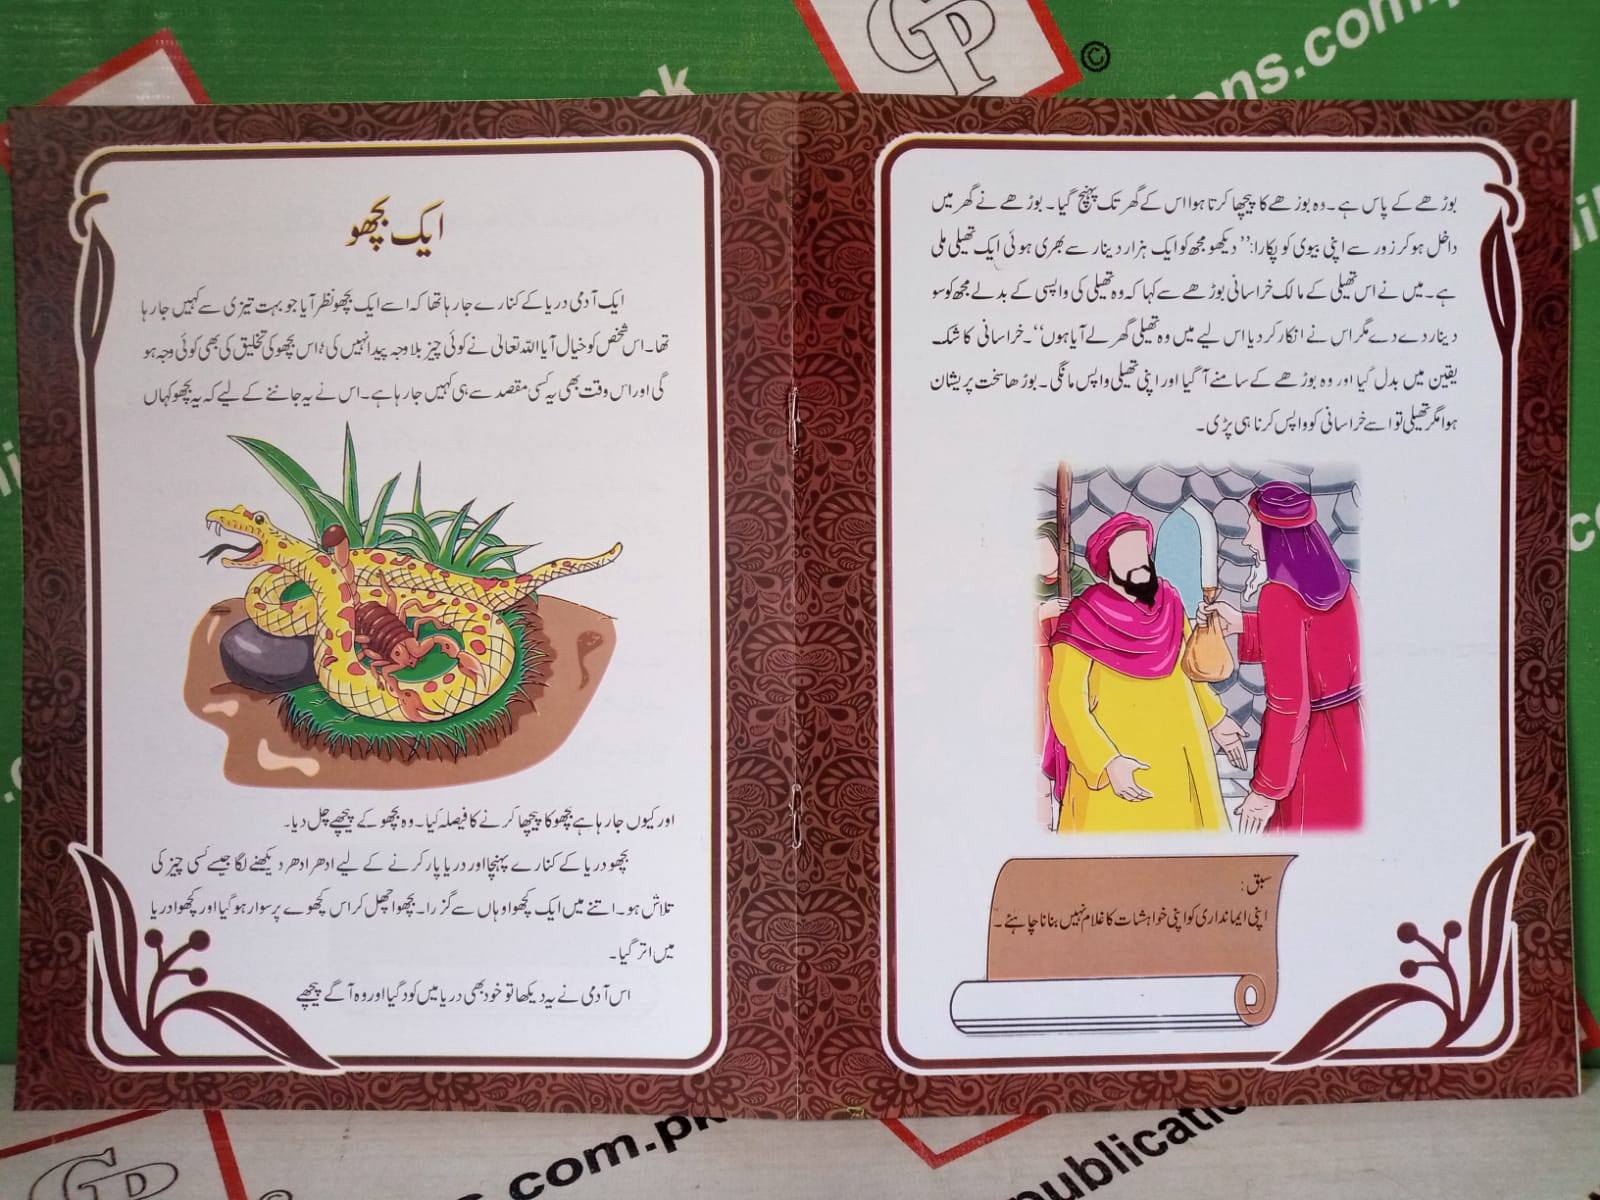 بوڑھے کے پاس ہے۔ وہ بوڑھے کا پیچھا کرتا ہوا اس کے گھر تک پہنچ گیا۔ بوڑھے نے گھر میں
داخل ہو کر زور سے اپنی بیوی کو پکارا: ’’دیکھو مجھ کو ایک ہزار دینار سے بھری ہوئی ایک تھیلی ملی
ہے۔ میں نے اس تھیلی کے مالک خراسانی بوڑھے سے کہا کہ وہ تھیلی کی واپسی کے بدلے مجھ کو سو
دینار دے دے مگر اس نے انکار کر دیا اس لیے میں وہ تھیلی گھر لے آیا ہوں‘‘۔ خراسانی کا شک
یقین میں بدل گیا اور وہ بوڑھے کے سامنے آ گیا اور اپنی تھیلی واپس مانگی۔ بوڑھا سخت پریشان
ہوا مگر تھیلی تو اسے خراسانی کو واپس کرنا ہی پڑی۔
سبق:
اپنی ایمانداری کو اپنی خواہشات کا غلام نہیں بنانا چاہئے۔
ایک بچھو
ایک آدمی دریا کے کنارے جا رہا تھا کہ اسے ایک بچھو نظر آیا جو بہت تیزی سے کہیں جا رہا
تھا۔ اس شخص کو خیال آیا اللہ تعالیٰ نے کوئی چیز بلا وجہ پیدا نہیں کی، اس بچھو کی تخلیق کی بھی کوئی وجہ ہو
گی اور اس وقت بھی یہ کسی مقصد سے ہی کہیں جا رہا ہے۔ اس نے یہ جاننے کے لیے کہ یہ بچھو کہاں
اور کیوں جا رہا ہے بچھو کا پیچھا کرنے کا فیصلہ کیا۔ وہ بچھو کے پیچھے چل دیا۔
بچھو دریا کے کنارے پہنچا اور دریا پار کرنے کے لیے ادھر ادھر دیکھنے لگا جیسے کسی چیز کی
تلاش ہو۔ اتنے میں ایک کچھوا وہاں سے گزرا۔ بچھو اچھل کر اس کچھوے پر سوار ہو گیا اور کچھوا دریا
میں اتر گیا۔
اس آدمی نے یہ دیکھا تو خود بھی دریا میں کود گیا اور وہ آگے پیچھے
GP
©
ons.com.p
pk
s.com.pk
publicatio
GP